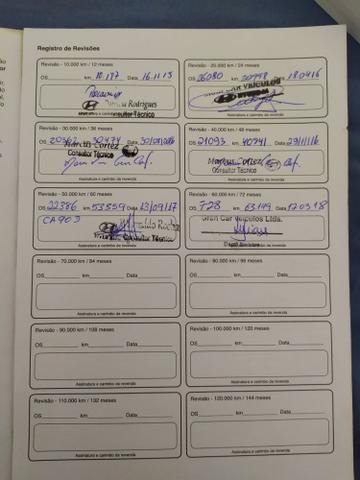 Registro de Revisões
Revisão - 10.000 km / 12 meses
OS km 10.197 Data 16.11.15
Rodrigues
Consultor Técnico
Assinatura e carimbo da revenda
Revisão - 20.000 km / 24 meses
OS 26080 km 20798 Data 180416
CAR VEÍCULOS
HYUNDAI
Assinatura e carimbo da revenda
Revisão - 30.000 km / 36 meses
OS km 30474 Data
Marcus Cortez
Consultor Técnico
Assinatura e carimbo da revenda
Revisão - 40.000 km / 48 meses
OS 21093 km 40241 Data 29/11/16
Marcus Cortez
Consultor Técnico
Assinatura e carimbo da revenda
Revisão - 50.000 km / 60 meses
OS 22386 km 53859 Data 13/09/17
CA903
Consultor Técnico
Assinatura e carimbo da revenda
Revisão - 60.000 km / 72 meses
OS 728 km 63149 Data 12.03.18
Gran Car Veículos Ltda.
Assinatura e carimbo da revenda
Revisão - 70.000 km / 84 meses
OS km Data
Assinatura e carimbo da revenda
Revisão - 80.000 km / 96 meses
OS km Data
Assinatura e carimbo da revenda
Revisão - 90.000 km / 108 meses
OS km Data
Assinatura e carimbo da revenda
Revisão - 100.000 km / 120 meses
OS km Data
Assinatura e carimbo da revenda
Revisão - 110.000 km / 132 meses
OS km Data
Assinatura e carimbo da revenda
Revisão - 120.000 km / 144 meses
OS km Data
Assinatura e carimbo da revenda